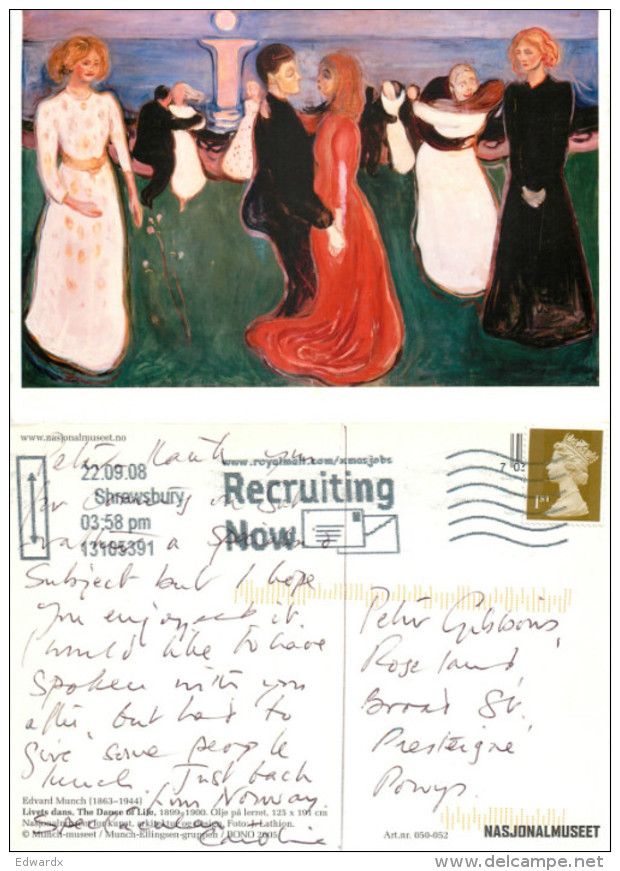 www.nasjonalmuseet.no
22.09.08
Shrewsbury
03:58 pm
13105391
www.royalmail.com/xmasjobs
Recruiting
Now
7 02
1ST
Peter
a
Subject but I hope
you enjoyed it.
I would like to have
spoken with you
after, but had to
give some people
lunch. Just back
from Norway.
Spectacular
Caroline
Peter Gibbons,
Roseland,
Broad St,
Presteigne,
Powys.
Edvard Munch (1863–1944)
Livets dans, The Dance of Life, 1899–1900. Olje på lerret, 125 x 191 cm
Nasjonalmuseet for kunst, arkitektur og design. Foto: J. Lathion.
© Munch-museet / Munch-Ellingsen-gruppen / BONO 2005
Art.nr. 050-052
NASJONALMUSEET
Edwardx
delcampe.net